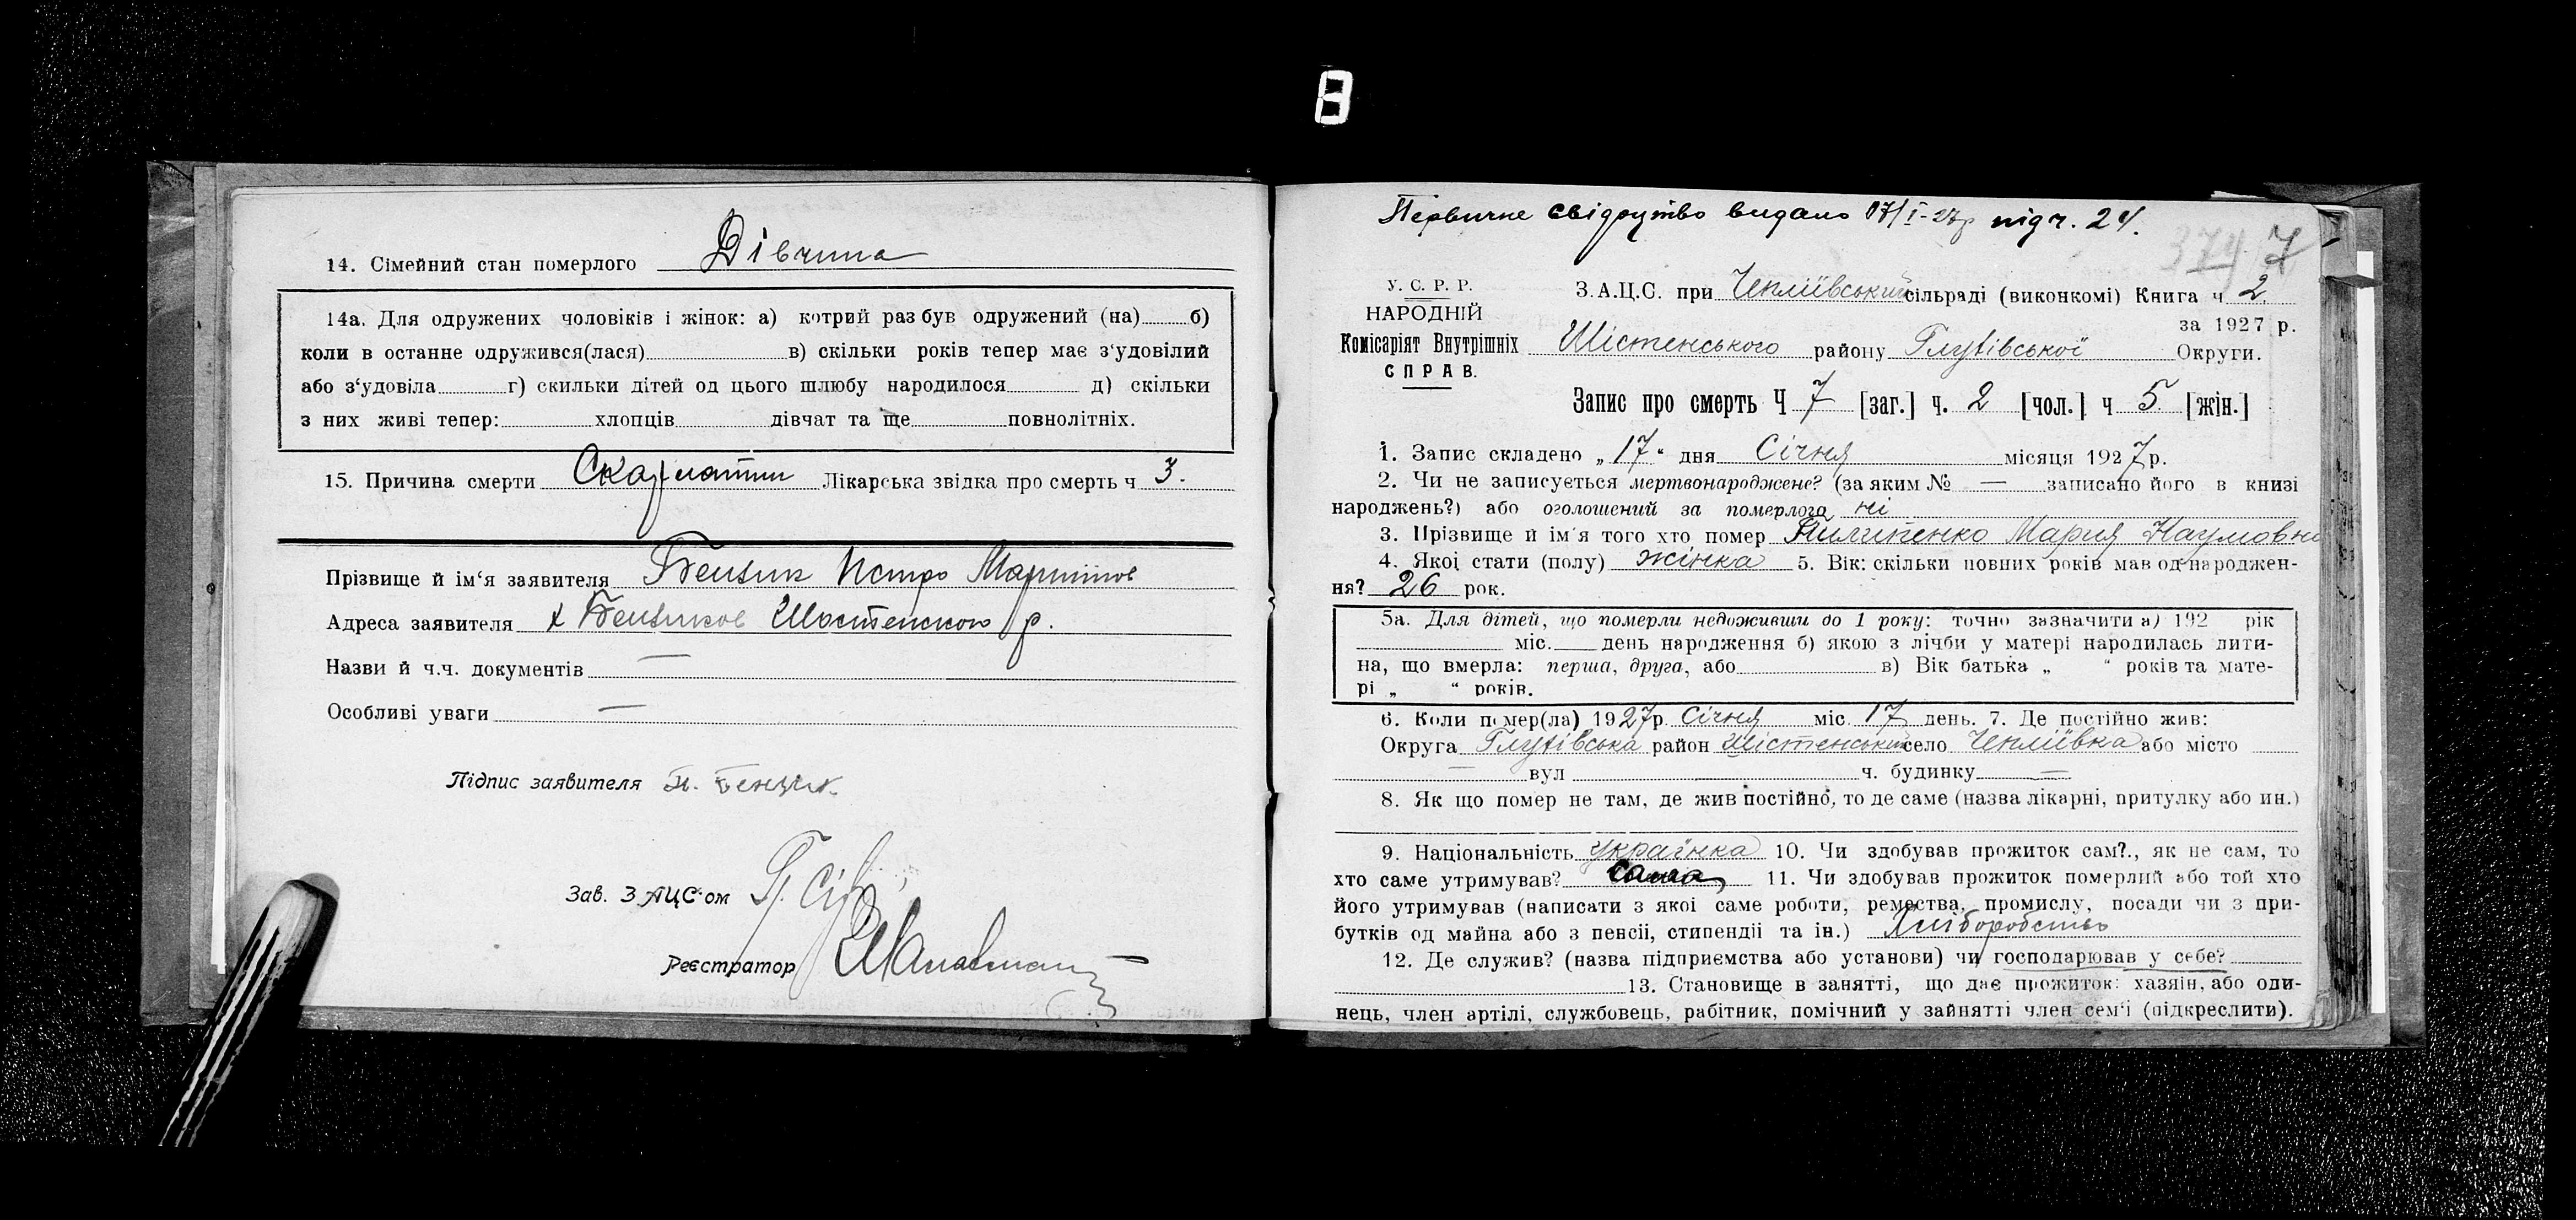 14. Сімейний стан померлого Дівчина
14а. Для одружених чоловіків і жінок: а) котрий раз був одружений (на) б)
коли в останнє одружився(лася) в) скільки років тепер має з'удовілий
або з'удовіла г) скильки дітей од цього шлюбу народилося д) скільки
з них живі тепер: хлопців дівчат та ще повнолітніх.
15. Причина смерти Лікарська звідка про смерть ч 3.
Прізвище й ім'я заявителя Бензик Петро Мартинов
Адреса заявителя х Бензиков Шостенского р.
Назви й ч.ч. документів —
Особливі уваги —
Підпис заявителя П. Бензик
Зав. З.АЦС'ом
Реєстратор
Первичне свідоцтво видано 17/I-27р під ч. 24.
374 7
У. С. Р. Р.
НАРОДНІЙ
Комісаріят Внутрішніх
СПРАВ.
З.А.Ц.С. при Чепліївський сільраді (виконкомі) Книга ч 2.
за 1927 р.
Шістенського району Глухівської Округи.
Запис про смерть Ч 7 [заг.] ч. 2 [чол.] ч 5. [жін.]
1. Запис складено „17" дня Січня місяця 1927 р.
2. Чи не записується мертвонароджене? (за яким № — записано його в книзі
народжень?) або оголошений за померлого ні
3. Прізвище й ім'я того хто помер Пилипенко Мария Наумовна
4. Якоі стати (полу) жінка 5. Вік: скільки повних років мав од народжен-
ня? 26 рок.
5а. Для дітей, що померли недоживши до 1 року: точно зазначити а) 192 рік
міс. день народження б) якою з лічби у матері народилась дити-
на, що вмерла: перша, друга, або в) Вік батька „ " років та мате-
рі „ " років.
6. Коли помер(ла) 1927 р. Січня міс. 17 день. 7. Де постійно жив:
Округа Глухівська район Шістенський село Чепліївка або місто
— вул ч. будинку —
8. Як що помер не там, де жив постійно, то де саме (назва лікарні, притулку або ин.)
9. Національність Українка 10. Чи здобував прожиток сам?., як не сам, то
хто саме утримував? сама 11. Чи здобував прожиток померлий або той хто
його утримував (написати з якоі саме роботи, ремества, промислу, посади чи з при-
бутків од майна або з пенсіі, стипендіі та ін.) Хліборобство
12. Де служив? (назва підприємства або установи) чи господарював у себе?
13. Становище в занятті, що дає прожиток: хазяїн, або оди-
нець, член артілі, службовець, рабітник, помічний у зайнятті член сем'і (підкреслити).